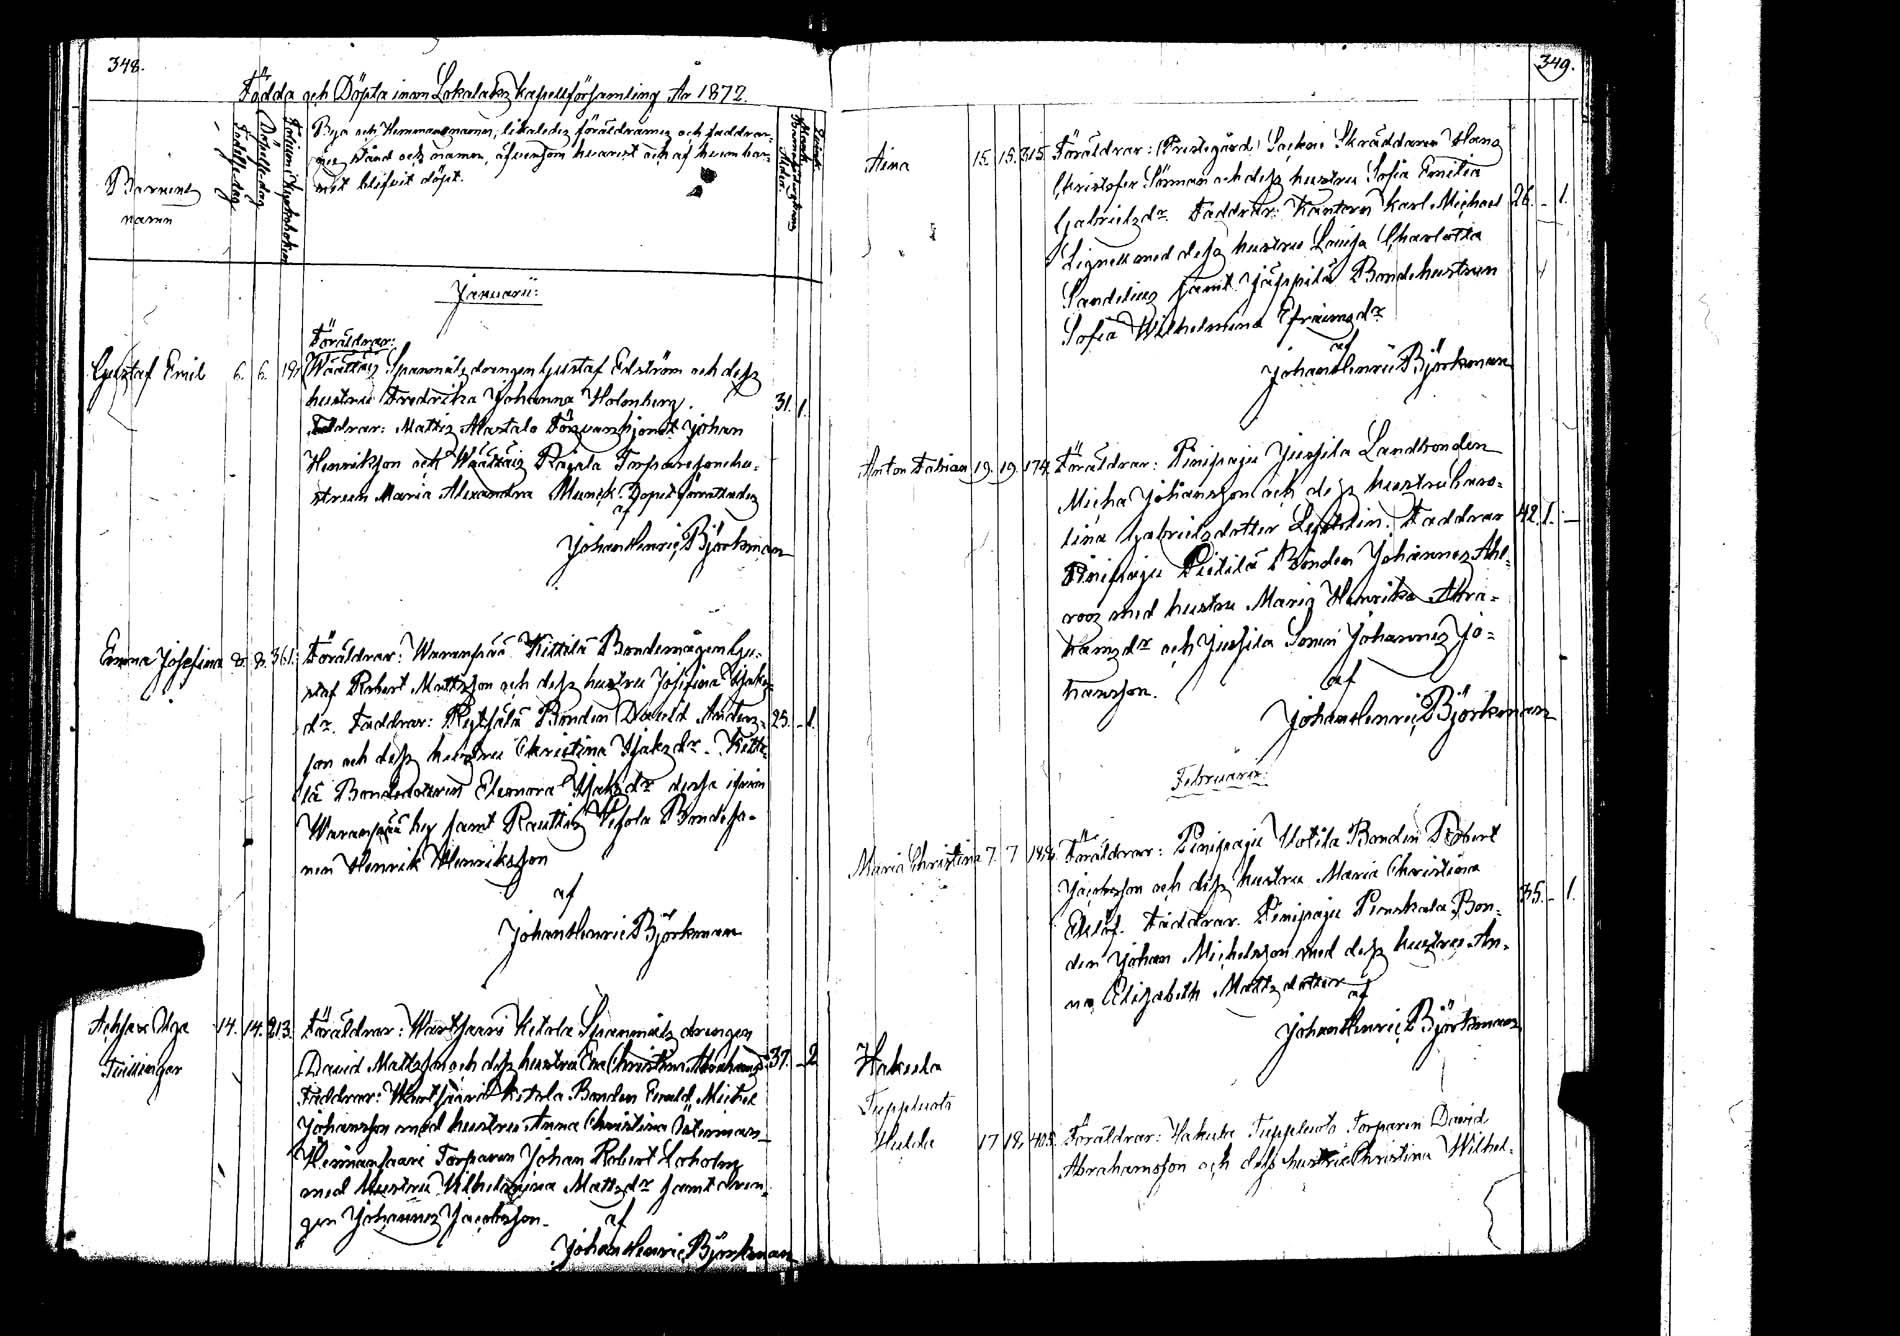 348.
Födda och Döpta inom Lokalaks kapellförsamling År 1872.
Barnens
namn
Födelsedag
Döpelsedag
Bya och Hemmansnamn, likaledes föräldrarnes och faddrar-
nes stånd och namn, äfvensom hvarest och af hvem bar-
net blifvit döpt.
Moders
Ålder
Januarii:
Föräldrar:
Gustaf Emil 6. 6. 191 Spanmåls drengen Gustaf Edström och dess
hustru Fredrika Johanna Holmberg. 31. 1.
Faddrar: Mattis Alastalo Johan
Henriksson och Rajala
Maria Alexandra Munck. Dopet förrättades
af
Johan Henric Björkman
Emma Josefina 8. 8. 361. Föräldrar: Waranpää Kittilä Bondemågen Gu-
staf Robert Mattsson och dess hustru Josefina Isaks
dr. Faddrar: Bonden David Anders- 25. - 1.
son och dess hustru Christina Isaksdr. Kitti-
lä Bondedottren Eleonora Isaksdr dessa ifrån
Waranpää by samt Rautis Bondeso-
nen Henrik Henriksson
af
Johan Henric Björkman
14. 14. 213. Föräldrar: Wartsaari Ketola Spanmåls drengen
Tvillingar David Mattsson och dess hustru Eva Christina Abrahams 37. - 2
Faddrar: Wartsaari Ketola Bonden Michel
Johansson med hustru Anna Christina Österman
Heinansaari Torparen Johan Robert
med hustru Vilhelmina Mattsdr samt dren-
gen Johannes Jacobsson.
af
Johan Henric Björkman
349.
Aina 15. 15. 315. Föräldrar: (Prestegård) Socken Skräddaren Hans
Christofer Sörman och dess hustru Sofia Emilia
Gabrielsdr. Faddrar: Kantorn Karl Michael 26. - 1.
Lignell med dess hustru Lovisa Charlotta
Sandelius samt Jäppilä Bondehustrun
Sofia Wilhelmina Efraimsdr
af
Johan Henric Björkman
Anton Fabian 19. 19. 174. Föräldrar: Pinipaju Jussila Landbonden
Micha Johansson och dess hustru Caro-
lina Gabrielsdotter. Faddrar 42. 1. -
Pinipaju Pietilä Bonden Johannes Ahl-
roos med hustru Maria Henrika Abra-
hamsdr och Jussila Sonen Johannes Jo-
hansson.
af
Johan Henric Björkman
Februarii:
Maria Christina 7. 7 Föräldrar: Pinipaju Bonden Robert
Jacobsson och dess hustru Maria Christina
Eklöf. Faddrar. Pinipaju Bon- 35. - 1.
den Johan Michelsson med dess hustru An-
na Elisabeth Mattsdotter
af
Johan Henric Björkman
Hakula
Tuppluoto
Hulda 17 18. 405. Föräldrar: Hakula Tuppluoto Torparen David
Abrahamsson och dess hustru Christina Wilhel-